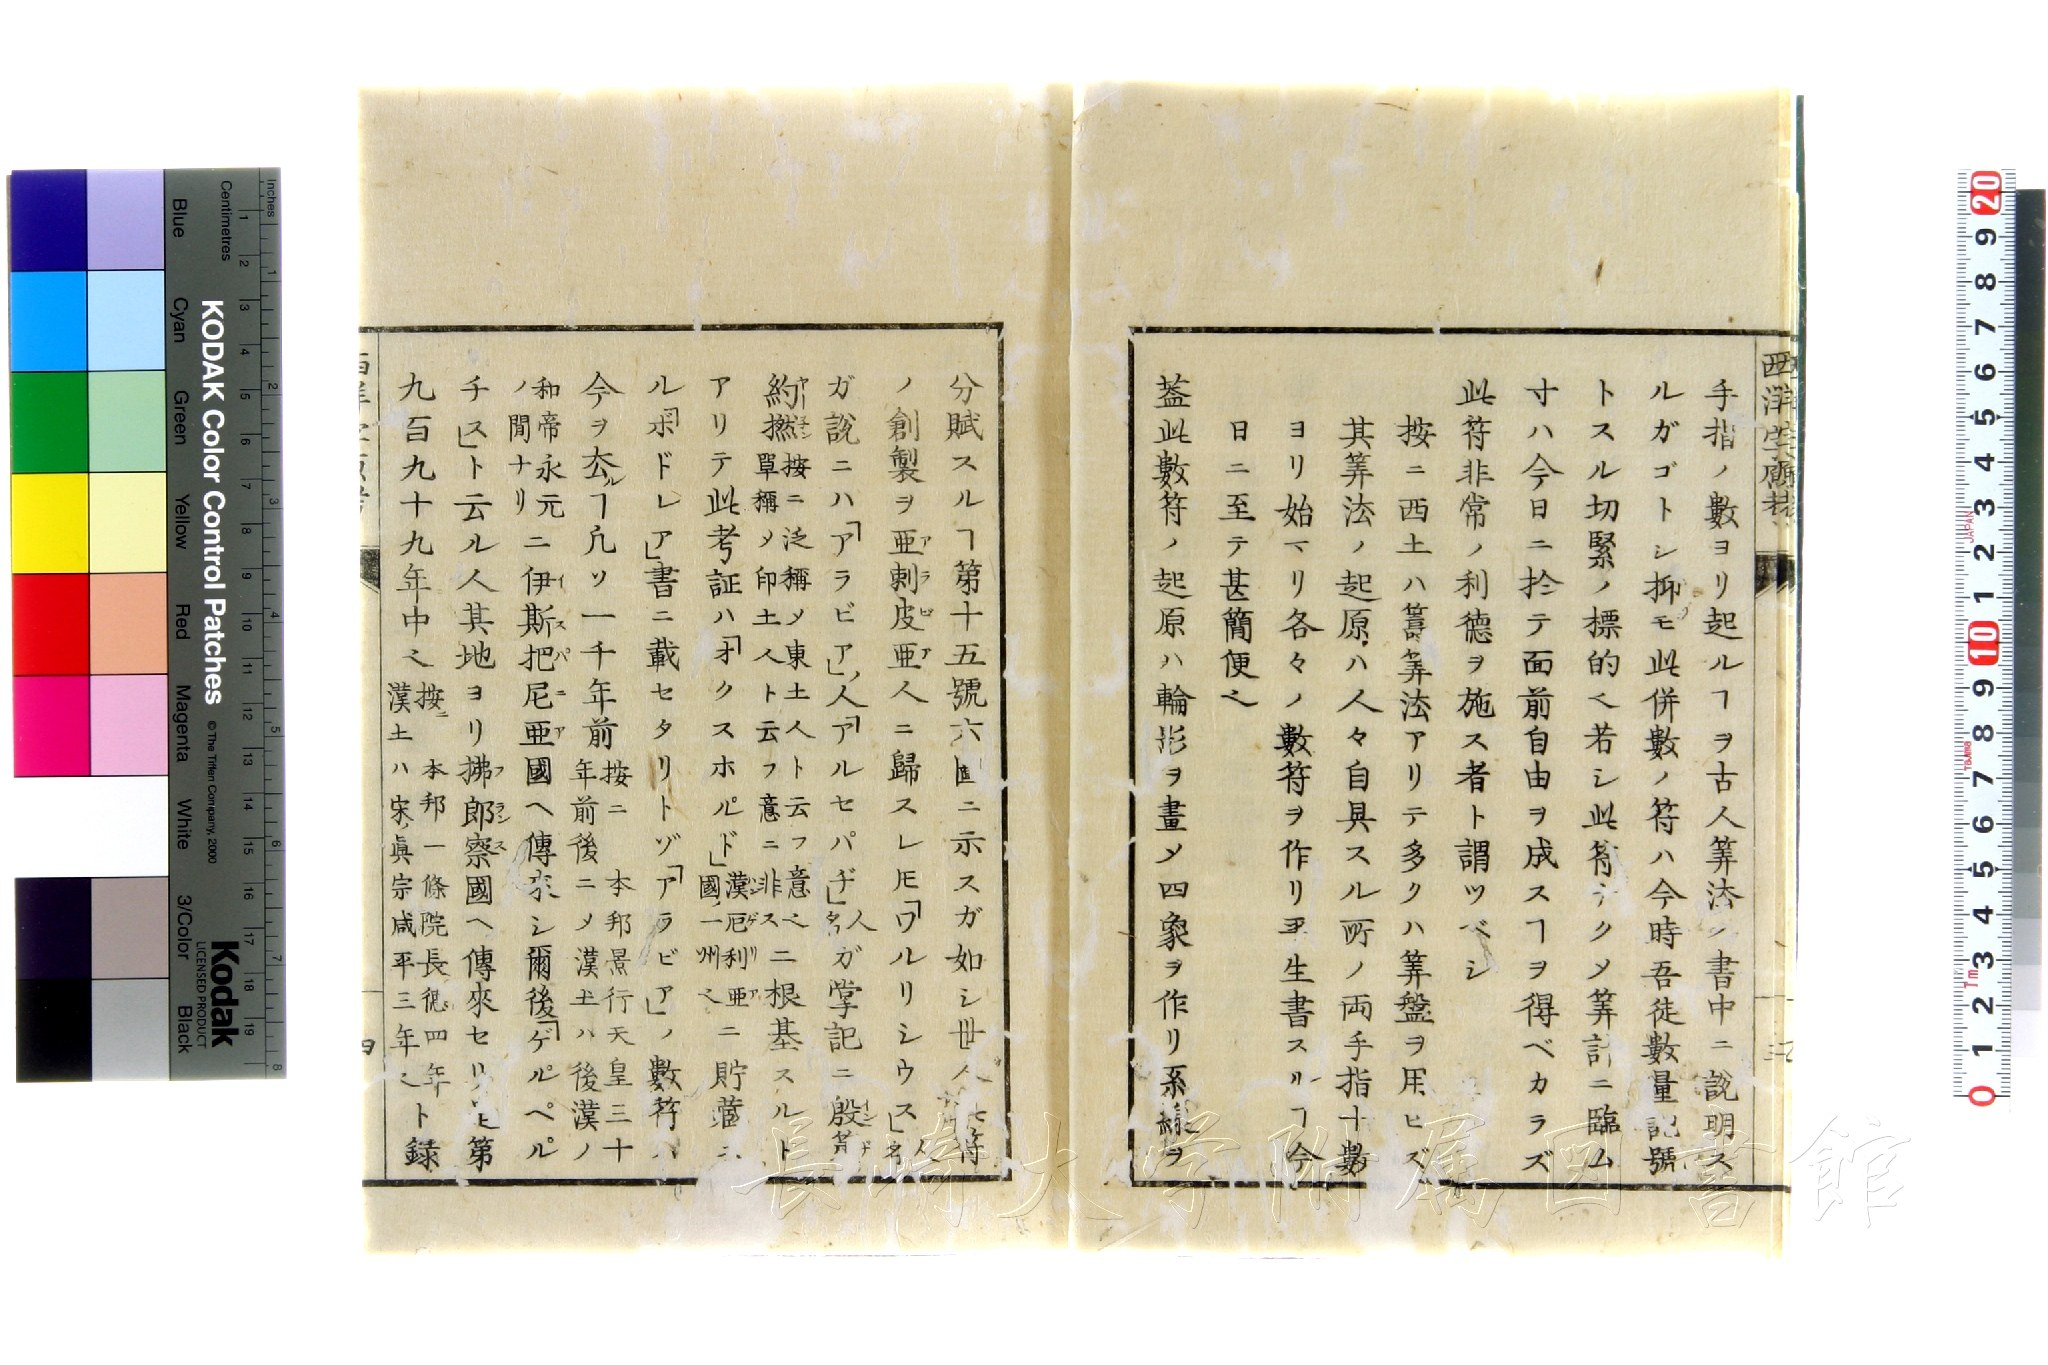 手指ノ數ヨリ起ルヿヲ古人筭法ノ書中ニ說明ス
ルガゴトシ抑モ此併數ノ符ハ今時吾徒數量記號
トスル切緊ノ標的ヘ若シ此符ナクメ筭計ニ臨ム
寸ハ今日ニ扵テ面前自由ヲ成スヿヲ得ベカラズ
此符非常ノ利德ヲ施ス者ト謂ツベシ
按ニ西土ハ籌筭法アリテ多クハ筭盤ヲ用ヒズ
其筭法ノ起原ハ人々自具スル所ノ両手指十數
ヨリ始マリ各々ノ數符ヲ作リ玊生書スルヿ今
日ニ至テ甚簡便ヘ
葢此數符ノ起原ハ輪形ヲ畫メ四象ヲ作リ系線ヲ
分賦スルヿ第十五號六圖ニ示スガ如シ世人此符
ノ創製ヲ亜剌皮亜人ニ歸スレ𪜈「ワルリシウス」人名
アラビア
ガ說ニハ「アラビア」ノ人「アルセパヂ」人名ガ掌記ニ殷篤
インド
約撚按ニ泛稱メ東土人ト云フ意ヘ
單稱メ印土人ト云フ意ニ非ズ
ニ根基スルト
アリテ此考証ハ「オクスホルド」漢厄利亜
國ノ一州ヘ
ニ貯蓄ス
ルボドレア」書ニ載セタリトゾ「アラビア」ノ數符ハ
今ヲ厺ルヿ凢ソ一千年前按ニ 本邦景行天皇三十
年前後ニメ漢土ハ後漢ノ
和帝永元
ノ間ナリ
ニ伊斯把尼亜國ヘ傳來シ爾後「ゲルペル
イスパニア
チス」ト云ル人其地ヨリ拂郎察國ヘ傳來セリ
フランス
第
九百九十九年中ヘ按ニ 本邦一條院長德四年
漢土ハ宋ノ眞宗咸平三年ヘ
ト録
KODAK Color Control Patches
© The Tiffen Company, 2000
Kodak
LICENSED PRODUCT
Inches
Centimetres
Blue
Cyan
Green
Yellow
Red
Magenta
White
3/Color
Black
JAPAN
長崎大学附属図書館